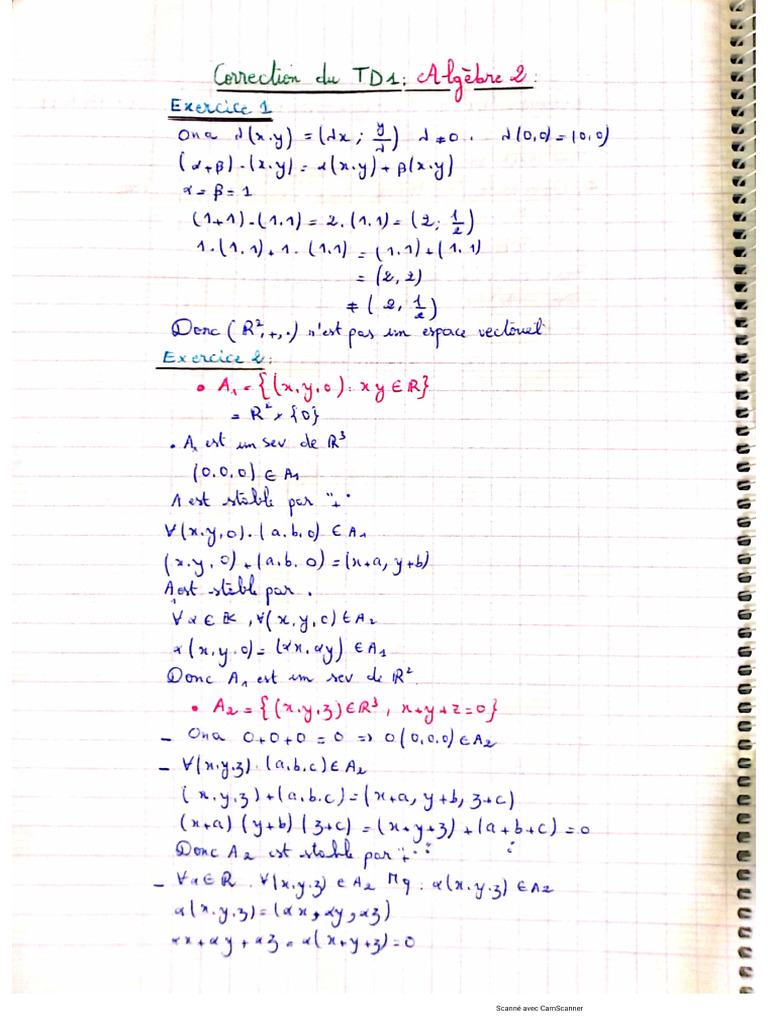 Correction du TD1: Algèbre 2:
Exercice 1
Ona λ(x.y) = (λx ; y/λ) λ≠0. λ(0,0)=(0,0)
(α+β).(x.y) = α(x.y)+β(x.y)
α = β = 1
(1+1).(1.1) = 2.(1.1) = (2; 1/2)
1.(1.1)+1.(1.1) = (1.1)+(1.1)
= (2,2)
≠ (2, 1/2)
Donc (R²,+,.) n'est pas un espace vectoriel
Exercice 2:
• A₁ = {(x.y.0): xy ∈ R}
= R² × {0}
. A₁ est un sev de R³
(0.0.0) ∈ A₁
A est stable par "+"
∀(x.y,0).(a.b.0) ∈ A₁
(x.y,0)+(a.b.0)=(x+a, y+b)
A₁est stable par .
∀α∈ K, ∀(x,y,0)∈A₂
α(x,y.0)=(αx,αy) ∈ A₁
Donc A₁ est un sev de R².
• A₂ = {(x.y.z)∈R³, x+y+z=0}
- Ona 0+0+0 = 0 => 0(0.0.0)∈A₂
- ∀(x.y.z).(a.b.c)∈A₂
(x.y.z)+(a.b.c)=(x+a, y+b, z+c)
(x+a)(y+b)(z+c)=(x+y+z)+(a+b+c)=0
Donc A₂ est stable par "+"
- ∀α∈R. ∀(x.y.z) ∈ A₂ Mq: α(x.y.z) ∈A₂
α(x.y.z)=(αx,αy,αz)
αx+αy+αz=α(x+y+z)=0
Scanné avec CamScanner